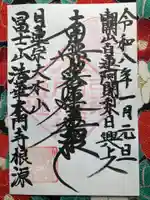 令和八年一月元旦
開山白蓮阿闍梨日興上人
南無妙法蓮華経
日蓮宗大本山
富士山法華本門寺根源